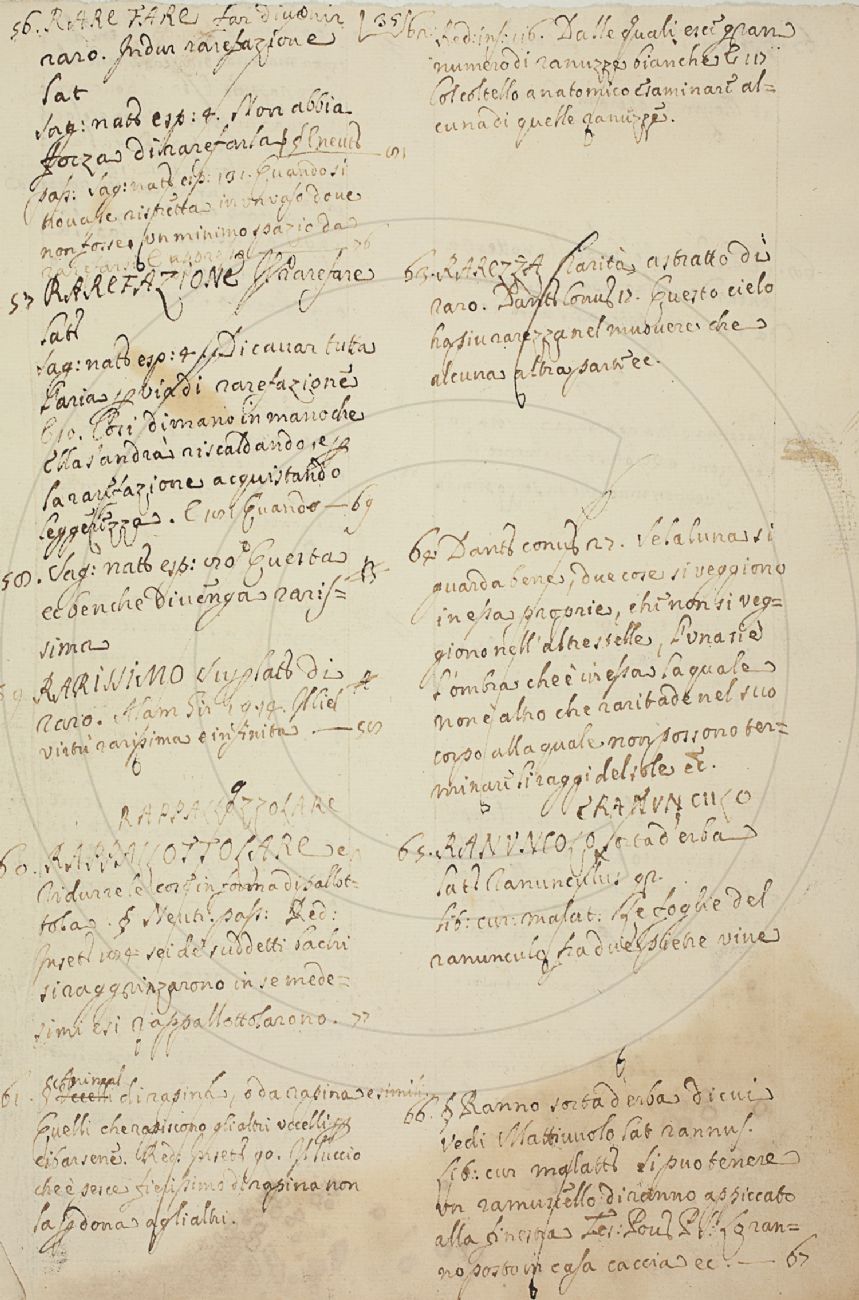 56. RAREFARE far divenir
raro. Indur rarefazione
Lat
Sag: nat: esp: 4. Non abbia
forza di rarefarla § E neut:
pass: Sag: nat: esp: 131. Quando si
trovasse ristretta in un vaso dove
non fosse un minimo spazio da
rarefarsi — 76
57 RAREFAZIONE Il rarefare
Lat:
Sag: nat: esp: 4 Di cavar tutta
l'aria p via di rarefazione
E 10. Così di mano in mano che
ella s'andrà riscaldando, e p
la rarefazione acquistando
leggerezza. E Quando — 69
58. Sag: nat: esp: Questa
ec benche divenga raris=
sima
59 RARISSIMO Superlat: di
raro. Alam Gir Il ciel
virtù rarissima e infinita — 58
RAPPALLOZZOLARE
60. RAPPALLOTTOLARE
Ridurre le cose in forma di pallot=
tola. § Neutr: pass: Red:
Inset: 104 sei de' suddetti bachi
si raggrinzarono in se mede=
simi e si rappallottolarono. 77
61. § Animal
di rapina, o da rapina e simili
Quelli che rapiscono gli altri uccelli p
cibarsene. Red: Inset: 90. Il luccio
che è pesce fierissimo di rapina non
la pdona agli altri.
35
62. Red: ins: 116. Dalle quali escì gran
numero di ranuzze bianche E 117
Col coltello anatomico esaminare al=
cuna di quelle ranuzze.
63. RAREZZA Rarità, astratto di
raro. Dant: Conv: 17. Questo cielo
ha più rarezza nel muovere che
alcuna altra parte ec.
64. Dant: conv: 27. Se la luna si
guarda bene, due cose si veggiono
in essa proprie, che non si veg=
giono nell'altre stelle, l'una si è
l'ombra che è in essa la quale
non è altro che raritade nel suo
corpo alla quale non possono ter=
minare li raggi del sole ec.
E RANUNCULO
65. RANUNCOLO sorta d'erba
Lat: Ranunculus gr.
Lib: cur: malat: Le foglie del
ranunculo fra due pietre vive
66. § Ranno sorta d'erba di cui
vedi Mattiuolo Lat rannus.
Lib: cur malatt: Si può tenere
un ramuscello di ranno appiccato
alla finestra Tes: Pov: P. S. Lo ran=
no posto in casa caccia ec. — 67